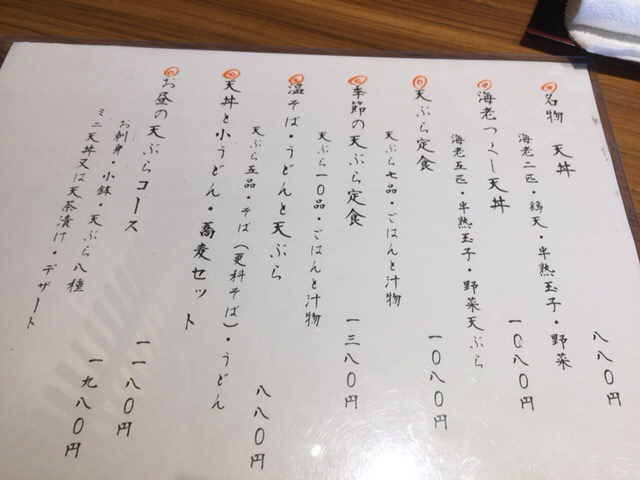 名物 天丼
海老二匹・鶏天・半熟玉子・野菜
八八〇円
海老つくし天丼
海老五匹・半熟玉子・野菜天ぷら
一〇八〇円
天ぷら定食
天ぷら七品・ごはんと汁物
一〇八〇円
季節の天ぷら定食
天ぷら一〇品・ごはんと汁物
一三八〇円
温そば・うどんと天ぷら
天ぷら五品・そば(更科そば)・うどん
八八〇円
天丼と小うどん・蕎麦セット
一一八〇円
お昼の天ぷらコース
お刺身・小鉢・天ぷら八種
ミニ天丼又は天茶漬け・デザート
一九八〇円